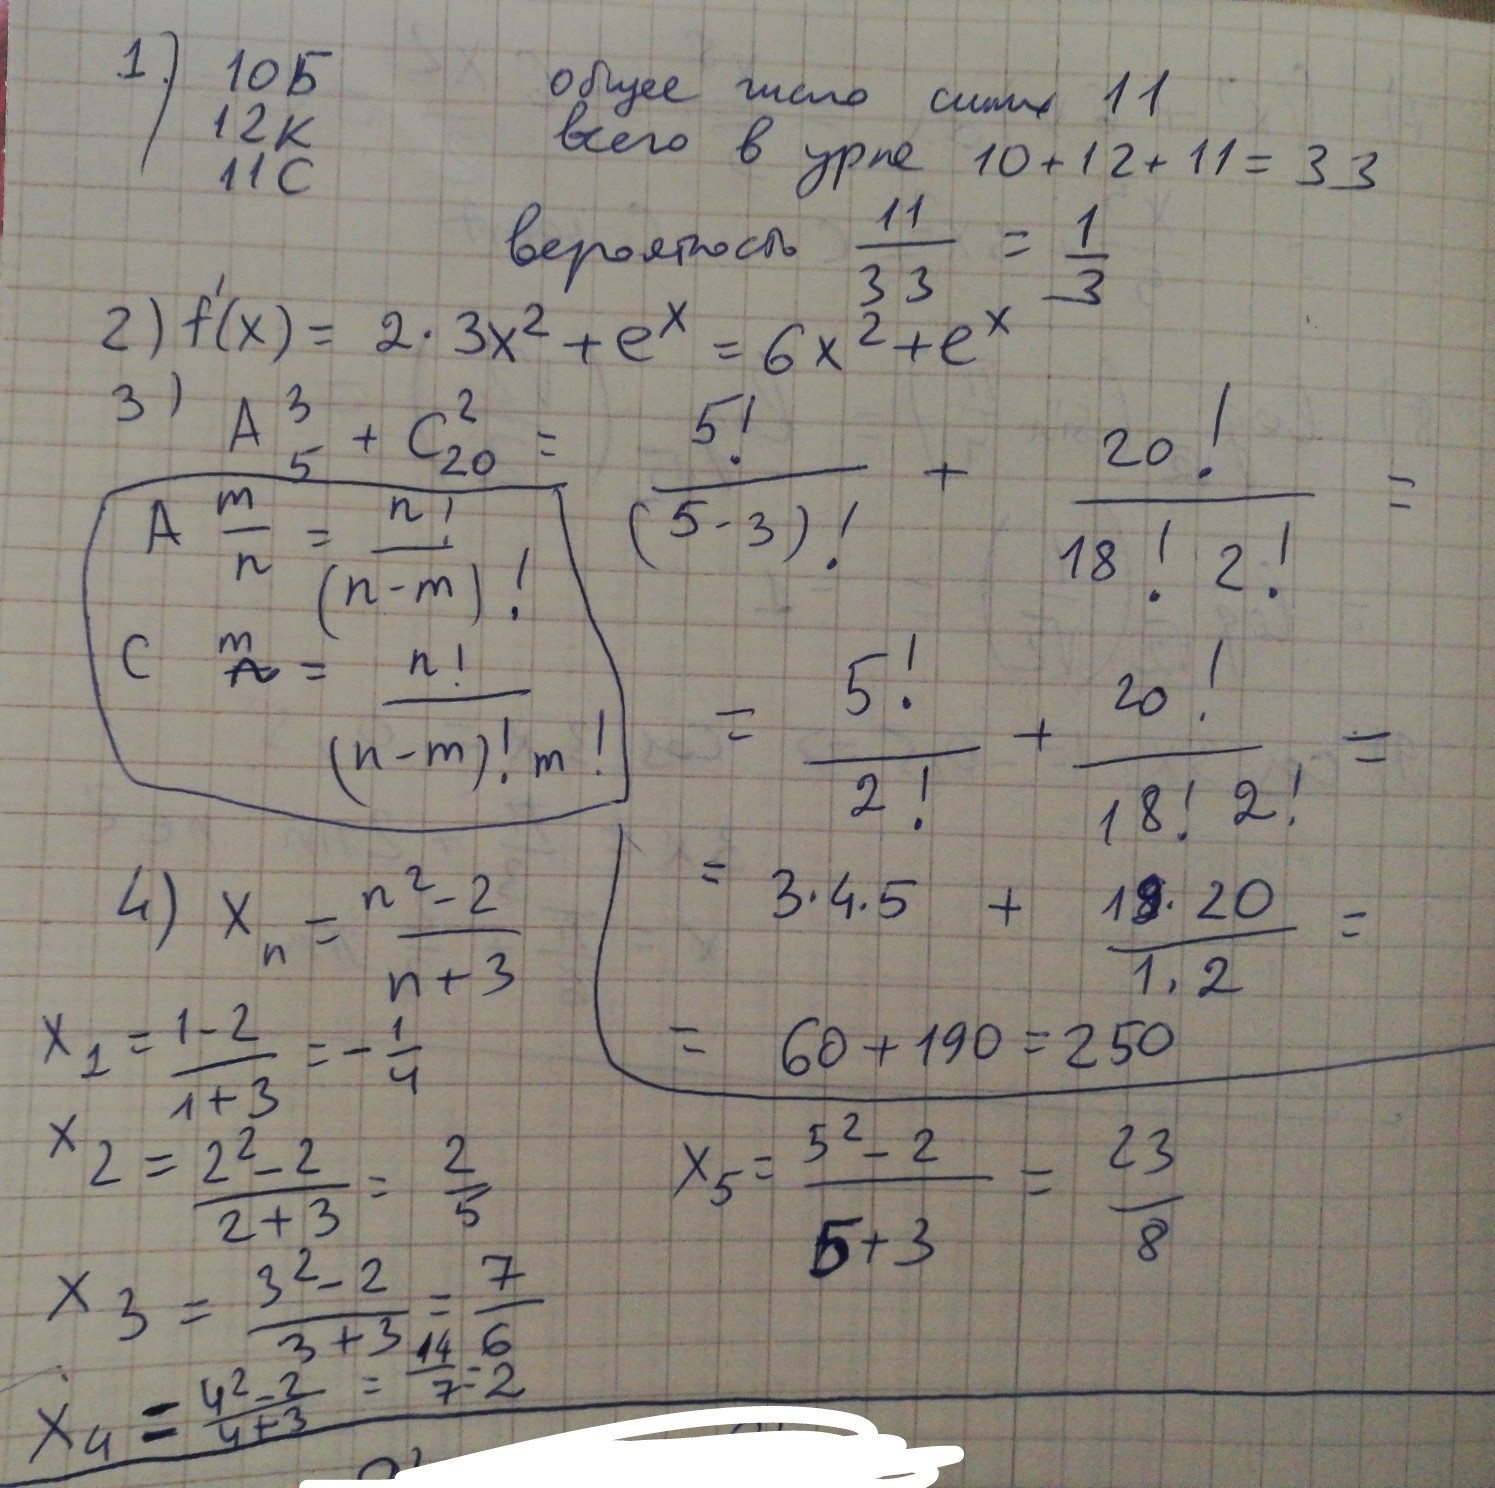 1) 10Б
12К
11С
общее число синих 11
всего в урне 10+12+11=33
вероятность 11/33 = 1/3
2) f'(x) = 2·3x² + eˣ = 6x² + eˣ
3) A₅³ + C₂₀² = 5!/(5-3)! + 20!/(18! 2!) =
A m/n = n!/(n-m)!
C m/n = n!/((n-m)! m!)
= 5!/2! + 20!/(18! 2!) =
= 3·4·5 + (19·20)/(1·2) =
= 60+190=250
4) xₙ = (n²-2)/(n+3)
x₁ = (1-2)/(1+3) = -1/4
x₂ = (2²-2)/(2+3) = 2/5
x₃ = (3²-2)/(3+3) = 7/6
x₄ = (4²-2)/(4+3) = 14/7 = 2
x₅ = (5²-2)/(5+3) = 23/8